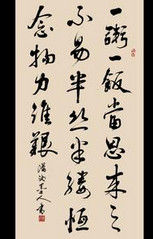 一粥一飯當思来之
不易半丝半縷恒
念物力維艱